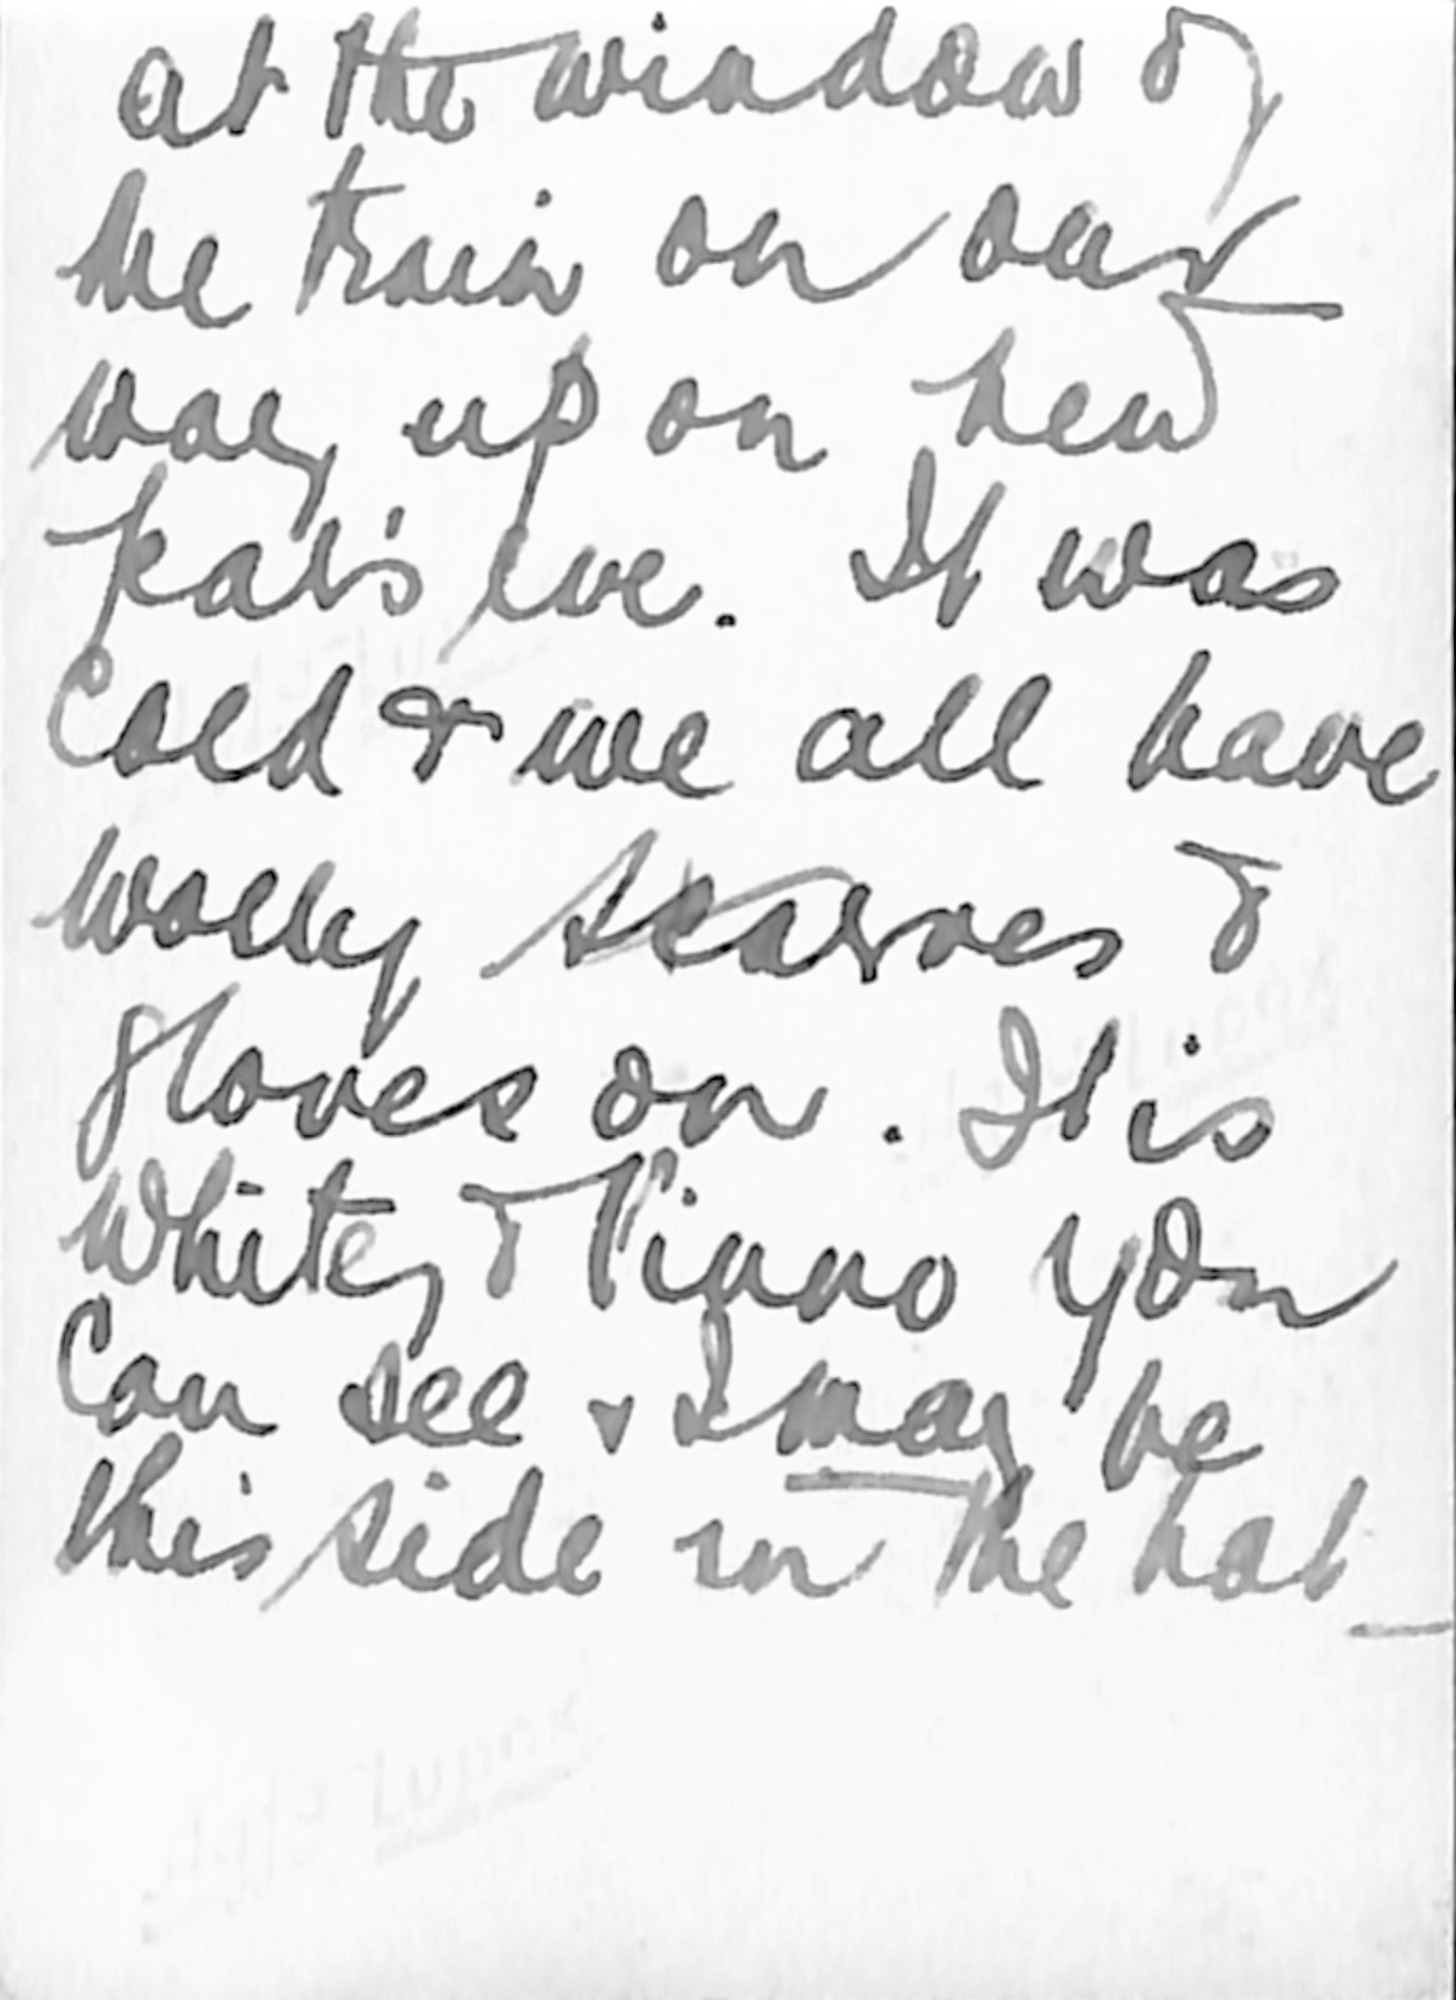 at the window of
the train on our
way up on new
Year's Eve. It was
cold & we all have
woolly scarves &
gloves on. It is
Whitey & you
can see & I may be
this side in the hat